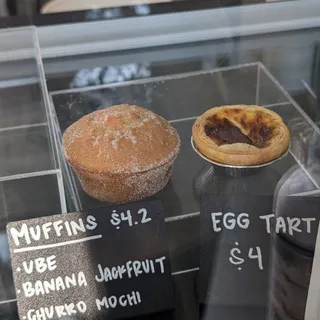 MUFFINS $4.2
·UBE
·BANANA JACKFRUIT
·CHURRO MOCHI
EGG TART
$4